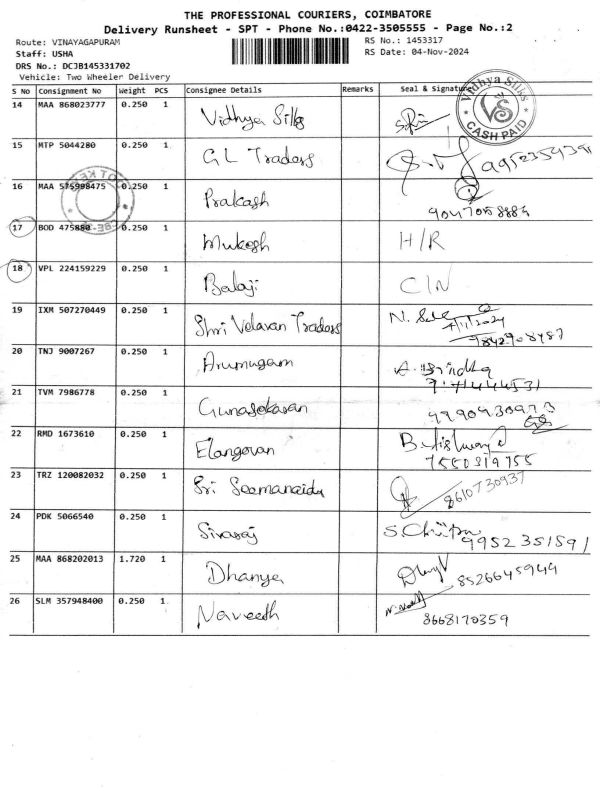 THE PROFESSIONAL COURIERS, COIMBATORE
Delivery Runsheet - SPT - Phone No.:0422-3505555 - Page No.:2
Route: VINAYAGAPURAM
RS No.: 1453317
Staff: USHA
RS Date: 04-Nov-2024
DRS No.: DCJB145331702
Vehicle: Two Wheeler Delivery
S No Consignment No Weight PCS Consignee Details Remarks Seal & Signature
14 MAA 868023777 0.250 1 Vidhya Silks
Vidhya Silks
VS
CASH PAID
15 MTP 5044280 0.250 1 GL Traders
16 MAA 575998475 0.250 1 Prakash
17 BOD 475880 0.250 1 Mukesh H/R
18 VPL 224159229 0.250 1 Balaji C/N
19 IXM 507270449 0.250 1 Shri Velavan Traders
20 TNJ 9007267 0.250 1 Arumugam
21 TVM 7986778 0.250 1 Gunasekaran
22 RMD 1673610 0.250 1 Elangovan
7550319755
23 TRZ 120082032 0.250 1 Sri Seemanaidu 8610730937
24 PDK 5066540 0.250 1 Sivaraj
9952351591
25 MAA 868202013 1.720 1 Dhanya 8526645944
26 SLM 357948400 0.250 1 Naveeth
8668170359